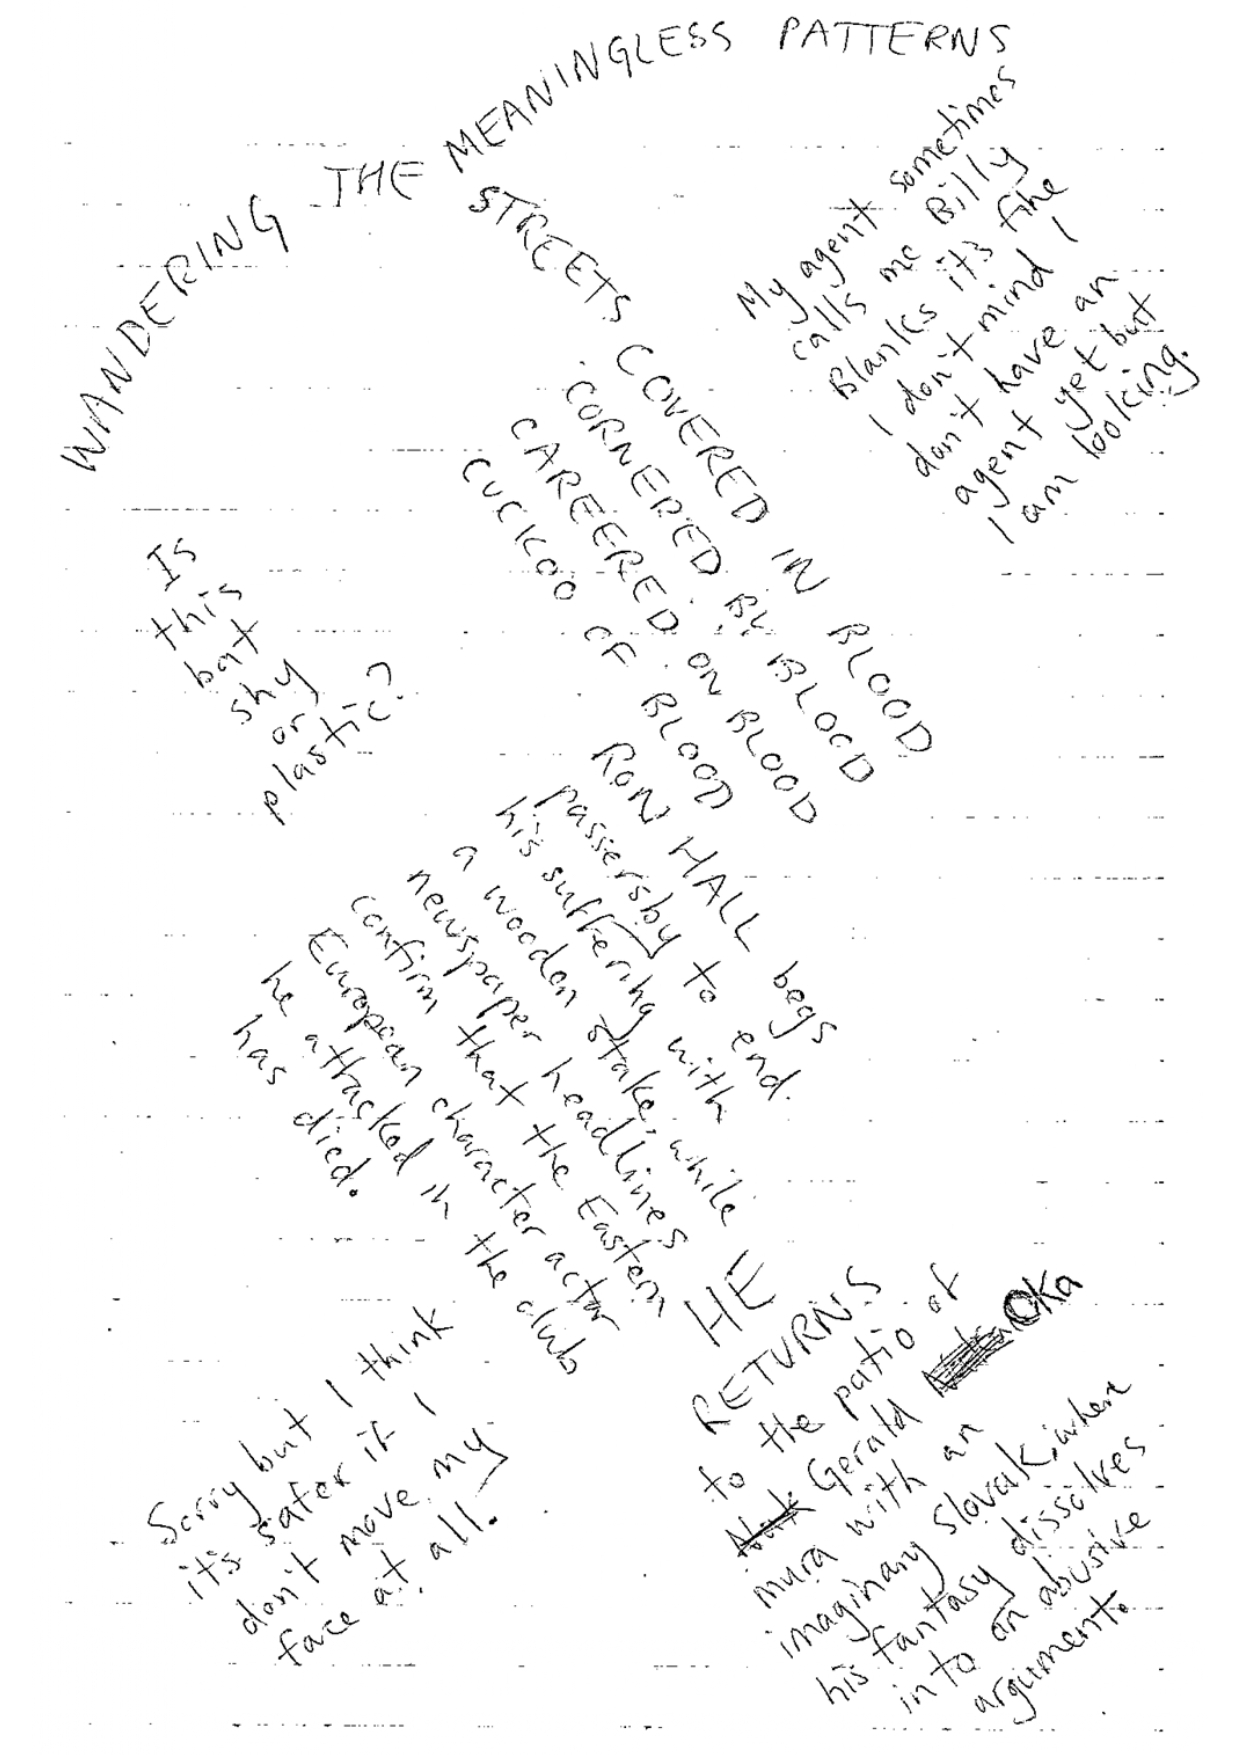 WANDERING THE MEANINGLESS PATTERNS
STREETS COVERED IN BLOOD
CORNERED BY BLOOD
CAREERED ON BLOOD
CUCKOO OF BLOOD
My agent sometimes
calls me Billy
Blanks it's fine
I don't mind I
don't have an
agent yet but
I am looking.
Is
this
bat
shy
or
plastic?
RON HALL begs
passersby to end
his suffering with
a wooden stake, while
newspaper headlines
confirm that the Eastern
European character actor
he attacked in the club
has died.
HE
RETURNS
to the patio of
Gerald OKa
mura with an
imaginary Slovak, where
his fantasy dissolves
into an abusive
argument.
Sorry but I think
it's safer if I
don't move my
face at all.